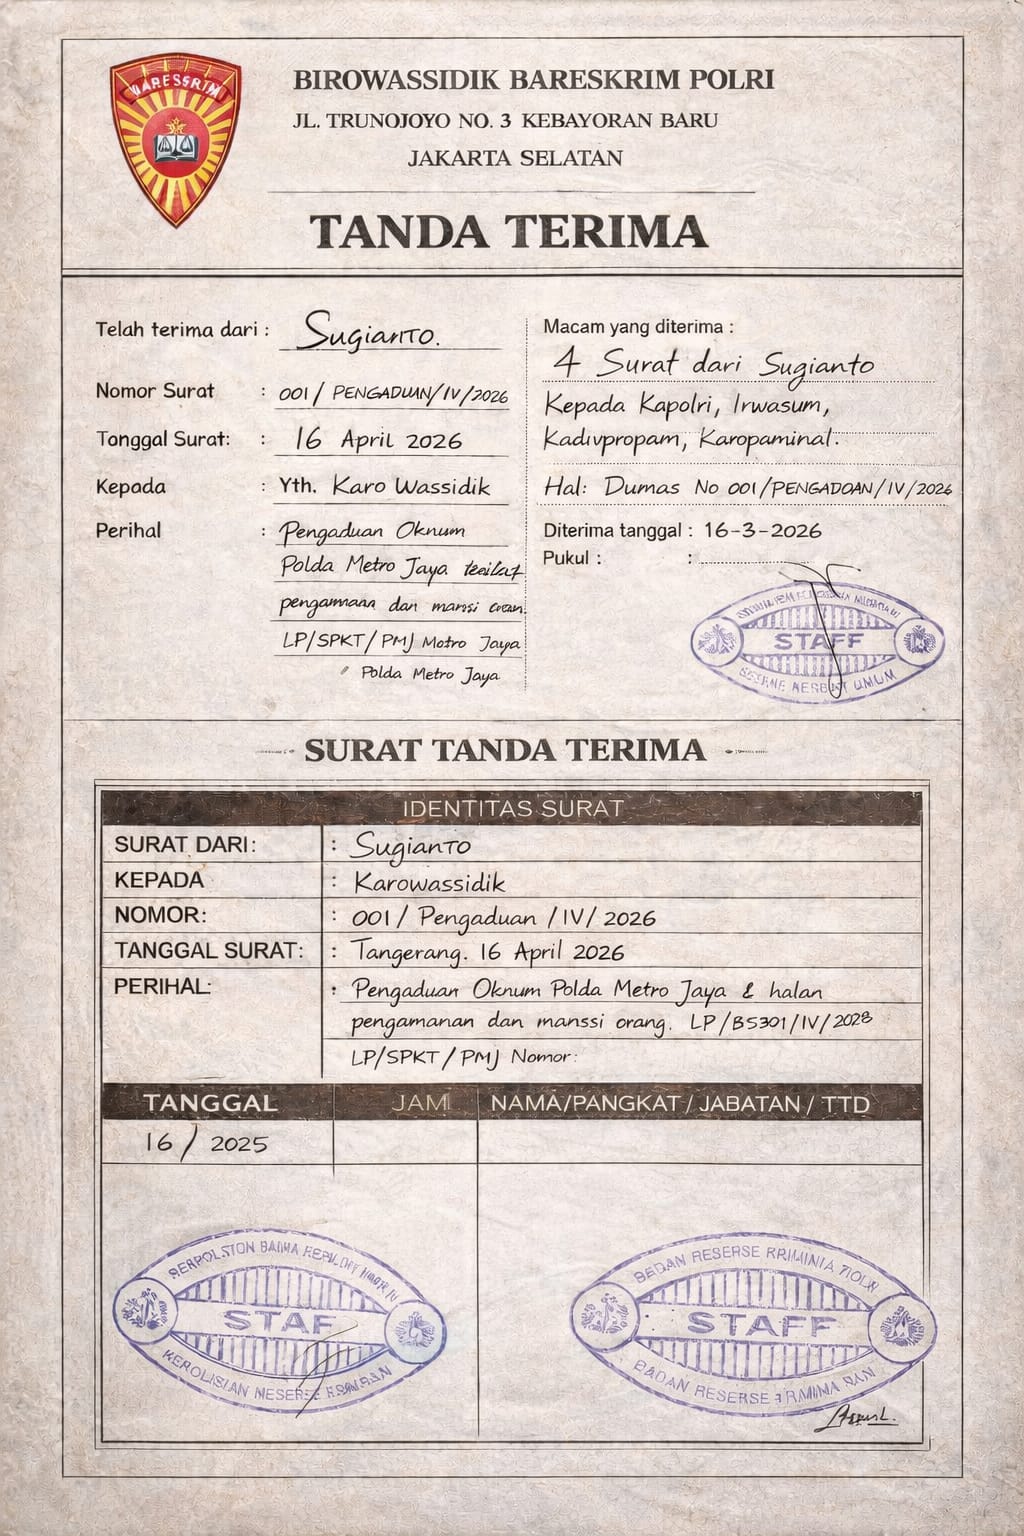 BARESSRIM
BIROWASSIDIK BARESKRIM POLRI
JL. TRUNOJOYO NO. 3 KEBAYORAN BARU
JAKARTA SELATAN
TANDA TERIMA
Telah terima dari : Sugianto.
Nomor Surat : 001 / PENGADUAN/IV/2026
Tanggal Surat: : 16 April 2026
Kepada : Yth. Karo Wassidik
Perihal : Pengaduan Oknum
Polda Metro Jaya
dan
LP/SPKT/PMJ Motro Jaya
Polda Metro Jaya
Macam yang diterima :
4 Surat dari Sugianto
Kepada Kapolri, Irwasum,
Kadivpropam, Karopaminal.
Hal: Dumas No 001/PENGADOAN/IV/2026
Diterima tanggal : 16-3-2026
Pukul : :
STAFF
SURAT TANDA TERIMA
IDENTITAS SURAT
SURAT DARI: : Sugianto
KEPADA : Karowassidik
NOMOR: : 001 / Pengaduan / IV/ 2026
TANGGAL SURAT: : Tangerang. 16 April 2026
PERIHAL: : Pengaduan Oknum Polda Metro Jaya & halan
pengamanan dan manssi orang. LP/B5301/IV/2028
LP/SPKT/PMJ Nomor:
TANGGAL JAMI NAMA/PANGKAT / JABATAN / TTD
16 / 2025
STAF
STAFF
BADAN RESERSE